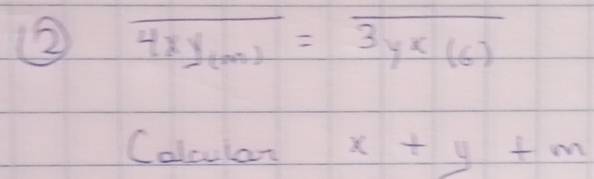 2 4xy(m) = 3yx(6)
Calcular x + y + m